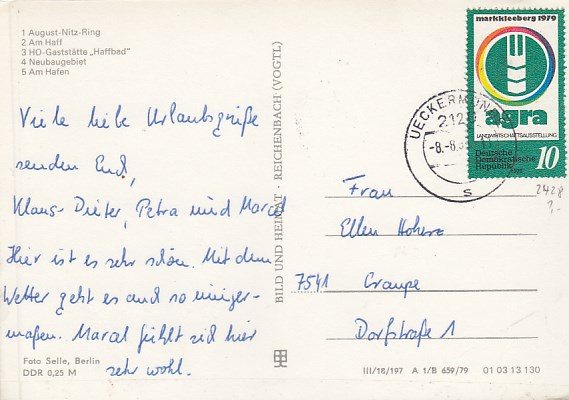 1 August-Nitz-Ring
2 Am Haff
3 HO-Gaststätte „Haffbad"
4 Neubaugebiet
5 Am Hafen
Viele liebe Urlaubsgrüße
senden Euch,
Klaus-Dieter, Petra und Marcel
Hier ist es sehr schön. Mit dem
Wetter geht es auch so einiger-
maßen. Marcel fühlt sich hier
sehr wohl.
Foto Selle, Berlin
DDR 0,25 M
BILD UND HEIMAT · REICHENBACH (VOGTL)
markkleeberg 1979
agra
LANDWIRTSCHAFTSAUSSTELLUNG
Deutsche
Demokratische
Republik
10
UECKERMÜNDE
2120
-8.-8.
s
2428
?.-
Frau
Ellen
7541 Craupe
Dorfstraße 1
III/18/197 A 1/B 639/79 01 03 13 130